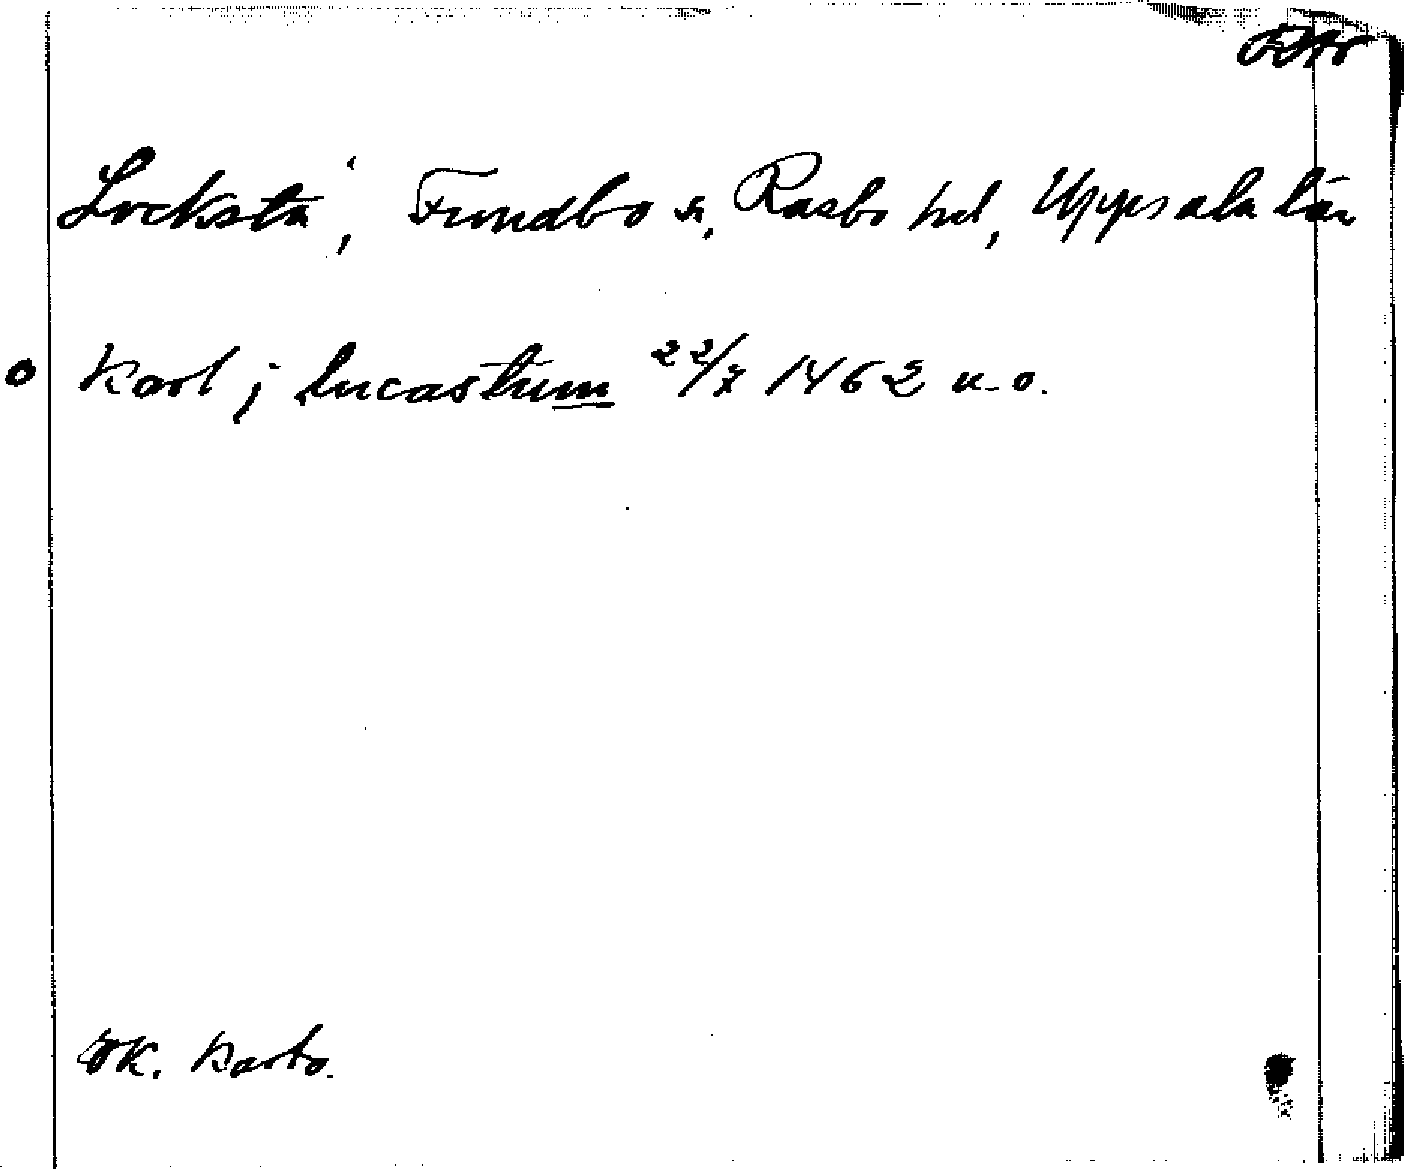 Locksta, Fundbo sn, Rasbo hd, Uppsala län
Karl j lucastum 22/7 1462 u. o.
ÖK. Karto.